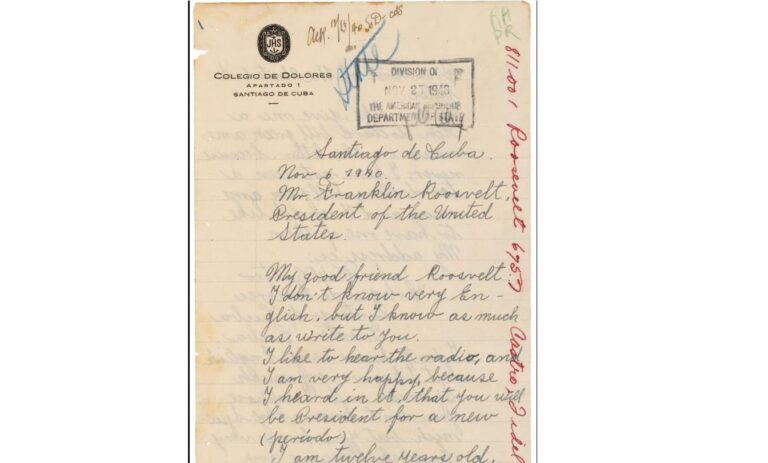 JHS
COLEGIO DE DOLORES
APARTADO 1
SANTIAGO DE CUBA
State
DIVISION OF
NOV 27 1940
THE AMERICAN REPUBLICS
DEPARTMENT OF STATE
Santiago de Cuba.
Nov 6 1940.
Mr. Franklin Roosvelt,
President of the United
States.
My good friend Roosvelt
I don't know very En-
glish, but I know as much
as write to you.
I like to hear the radio, and
I am very happy, because
I heard in it, that you will
be President for a new
(periodo)
I am twelve years old.
811.001 Roosevelt Castro Fidel